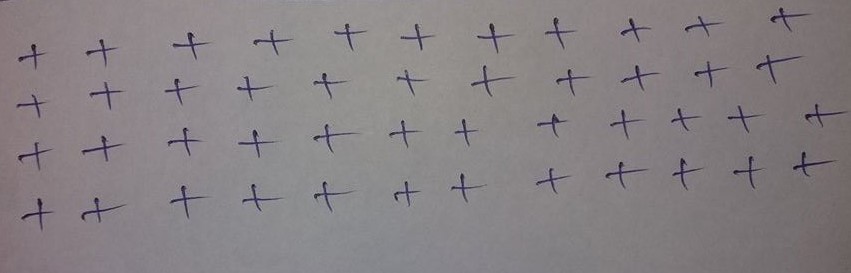 + + + + + + + + + + +
+ + + + + + + + + + +
+ + + + + + + + + + + +
+ + + + + + + + + + + +